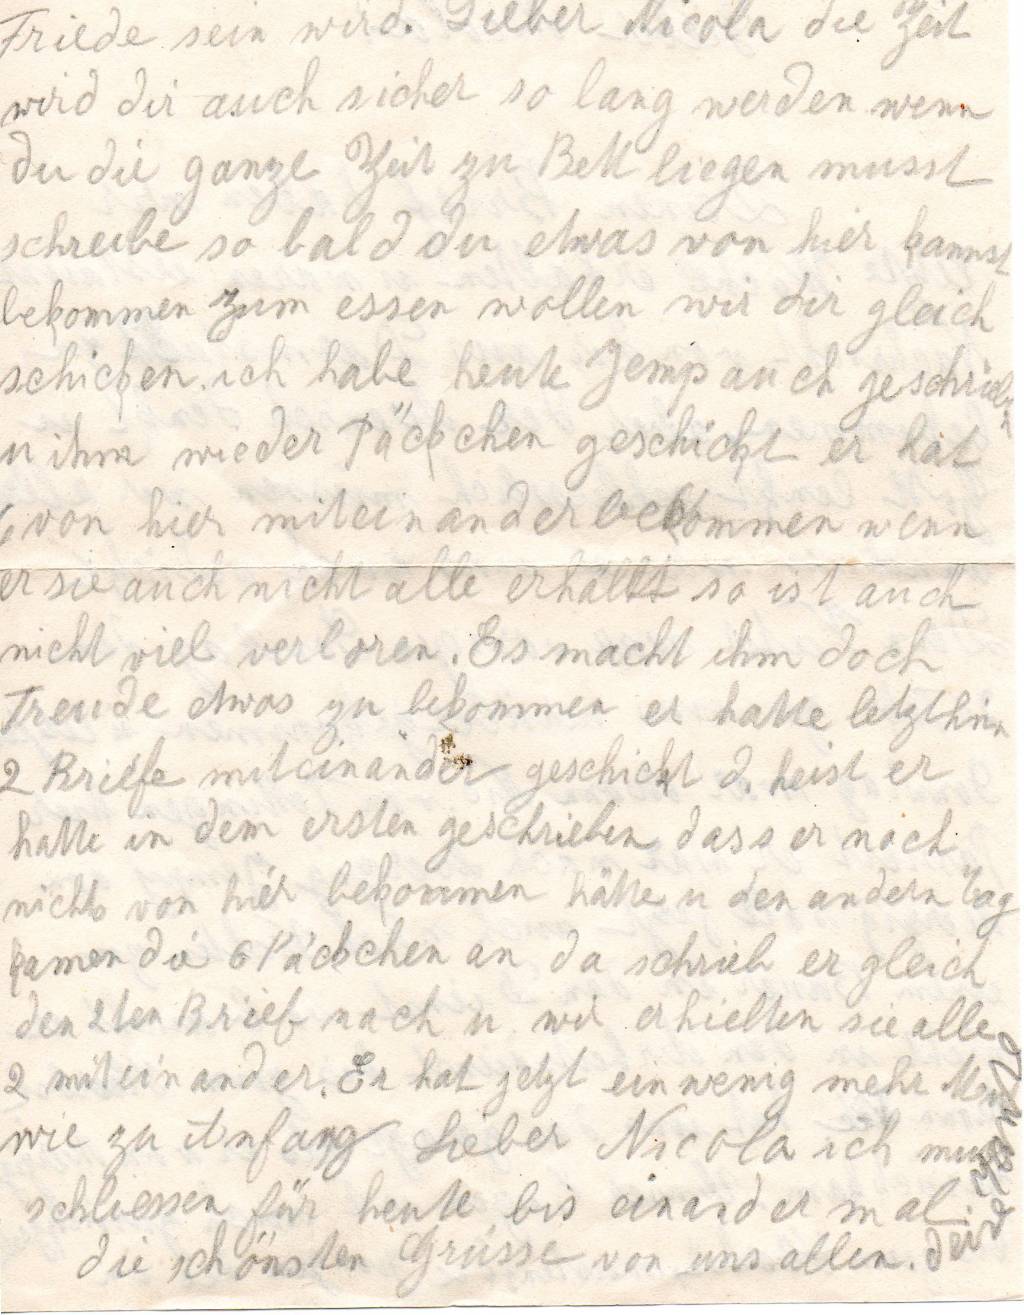 Friede sein wird. Lieber Nicola die Zeit
wird dir auch sicher so lang werden wenn
du die ganze Zeit zu Bett liegen musst
schreibe so bald du etwas von hier kannst
bekommen zum essen wollen wir dir gleich
schicken. ich habe heute Jemp auch geschrieb
u ihm wieder Päckchen geschickt er hat
6 von hier miteinander bekommen wenn
er sie auch nicht alle erhällt so ist auch
nicht viel verloren. Es macht ihm doch
Freude etwas zu bekommen er hatte letzthin
2 Briefe miteinander geschickt d. heist er
hatte in dem ersten geschrieben dass er noch
nichts von hier bekommen hätte u den andern Tag
kamen die 6 Päckchen an da schrieb er gleich
den 2ten Brief nach u wir erhielten sie alle
2 miteinander. Er hat jetzt ein wenig mehr
wie zu Anfang Lieber Nicola ich muss
schliessen für heute bis einandermal.
die schönsten Grüsse von uns allen.